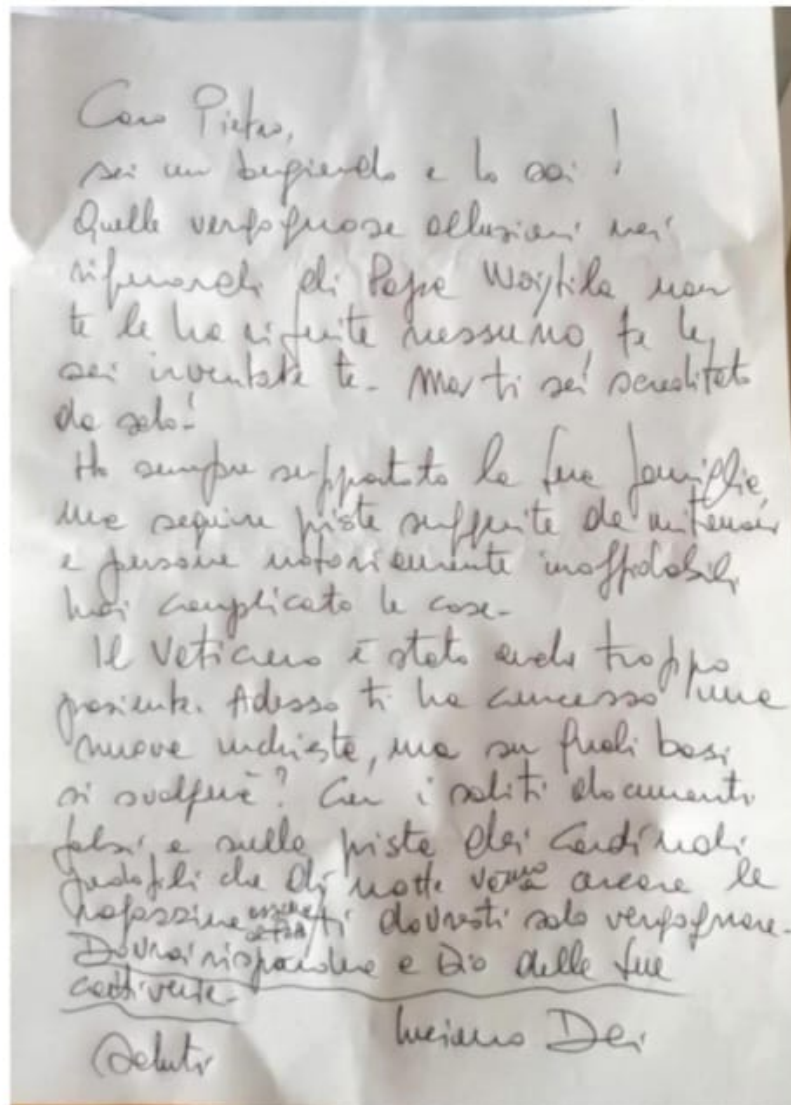 Caro Pietro,
sei un bugiardo e lo sai!
Quelle vergognose allusioni nei
riguardi di Papa Woytila non
te le ha riferite nessuno, te le
sei inventate te. Ma ti sei screditato
da solo!
Ho sempre supportato la tua famiglia,
ma seguire piste suggerite da mitomani
e persone notoriamente inaffidabili,
hai complicato le cose.
Il Vaticano è stato anche troppo
paziente. Adesso ti ha concesso una
nuova inchiesta, ma su quali basi
si svolgerà? Con i soliti documenti
falsi e sulla pista dei Cardinali
pedofili che di notte vanno a cercare le
ragazzine ti dovresti solo vergognare.
Dovrai rispondere a Dio delle tue
cattiverie.
Saluti Luciano Dei